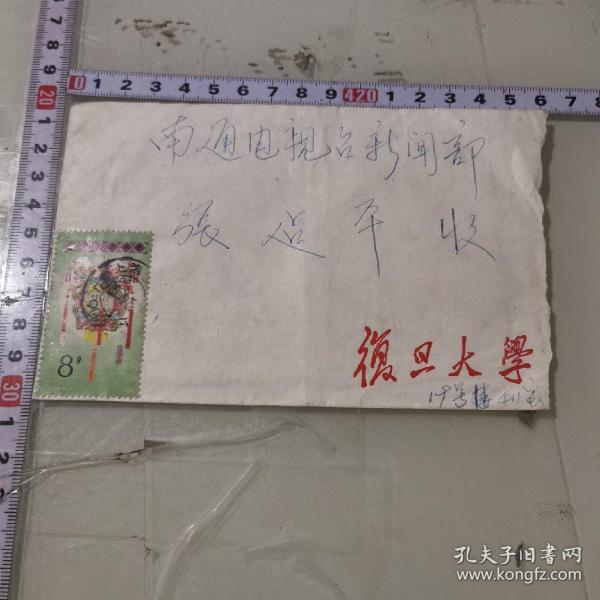 南通电视台新闻部
張 平 收
8分
復旦大學
19号楼 411室
孔夫子旧书网
www.kongfz.com
0 1 2 3 4 5 6 7 8 9 420 1 2 3 4 5 6 7 8
7 8 9 20 1 2 3 4 5 6 7 8 9 30 1